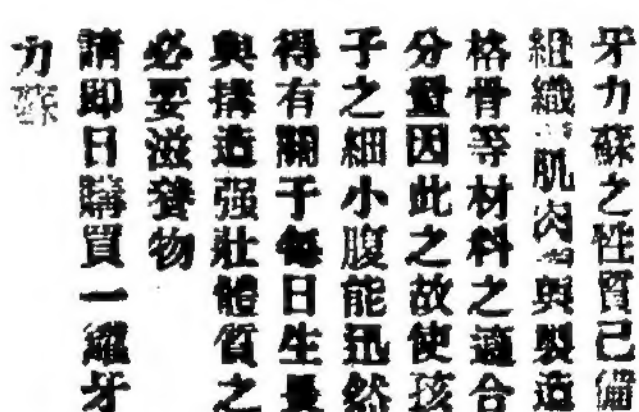 牙力蘇之性質己備
組織肌肉與製造
格骨等材料之適合
分量因此之故使孩
子之細小腹能迅然
得有關于每日生長
與搆造强壯體質之
必要滋養物
請即日購買一罐牙
力蘇